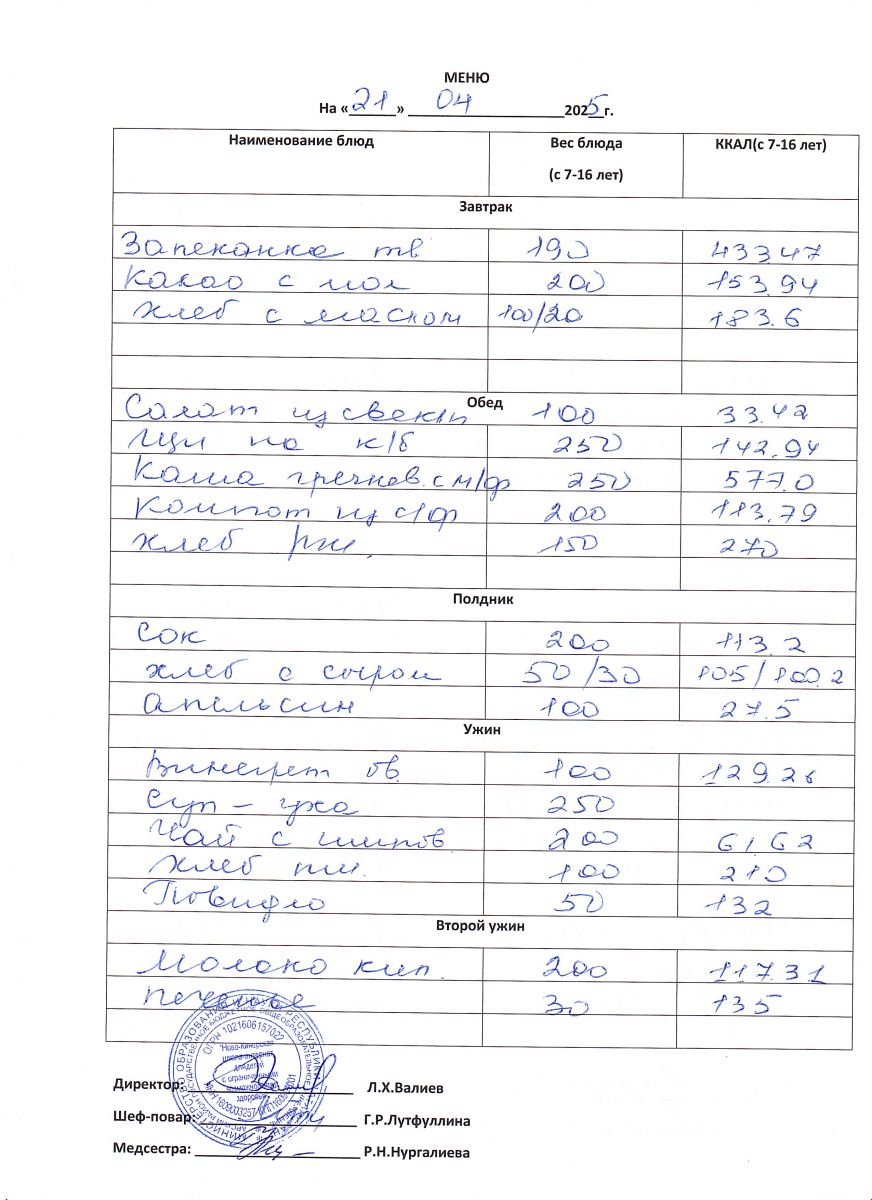 МЕНЮ
На «21» 04 2025г.
Наименование блюд Вес блюда (с 7-16 лет) ККАЛ(с 7-16 лет)
Завтрак
Запеканка тв. 190 433.47
Какао с мол 200 153.94
Хлеб с маслом 100/20 183.6
Обед
Салат из свеклы 100 33.42
Щи на к/б 250 142.94
Каша гречнев. с м/ф 250 577.0
Компот из с/ф 200 113.79
Хлеб рж. 150 270
Полдник
Сок 200 113.2
Хлеб с сыром 50/30 105/100.2
Апельсин 100 27.5
Ужин
Винегрет ов. 100 129.26
Суп – уха 250
Чай с шипов. 200 61.62
Хлеб пш. 100 210
Повидло 50 132
Второй ужин
Молоко кип. 200 117.31
Печенье 30 135
Директор: Л.Х.Валиев
Шеф-повар: Г.Р.Лутфуллина
Медсестра: Р.Н.Нургалиева
ОГРН 1021606157022
"Ново-Кинерская
школа-интернат
для детей
с ограниченными
возможностями
здоровья"